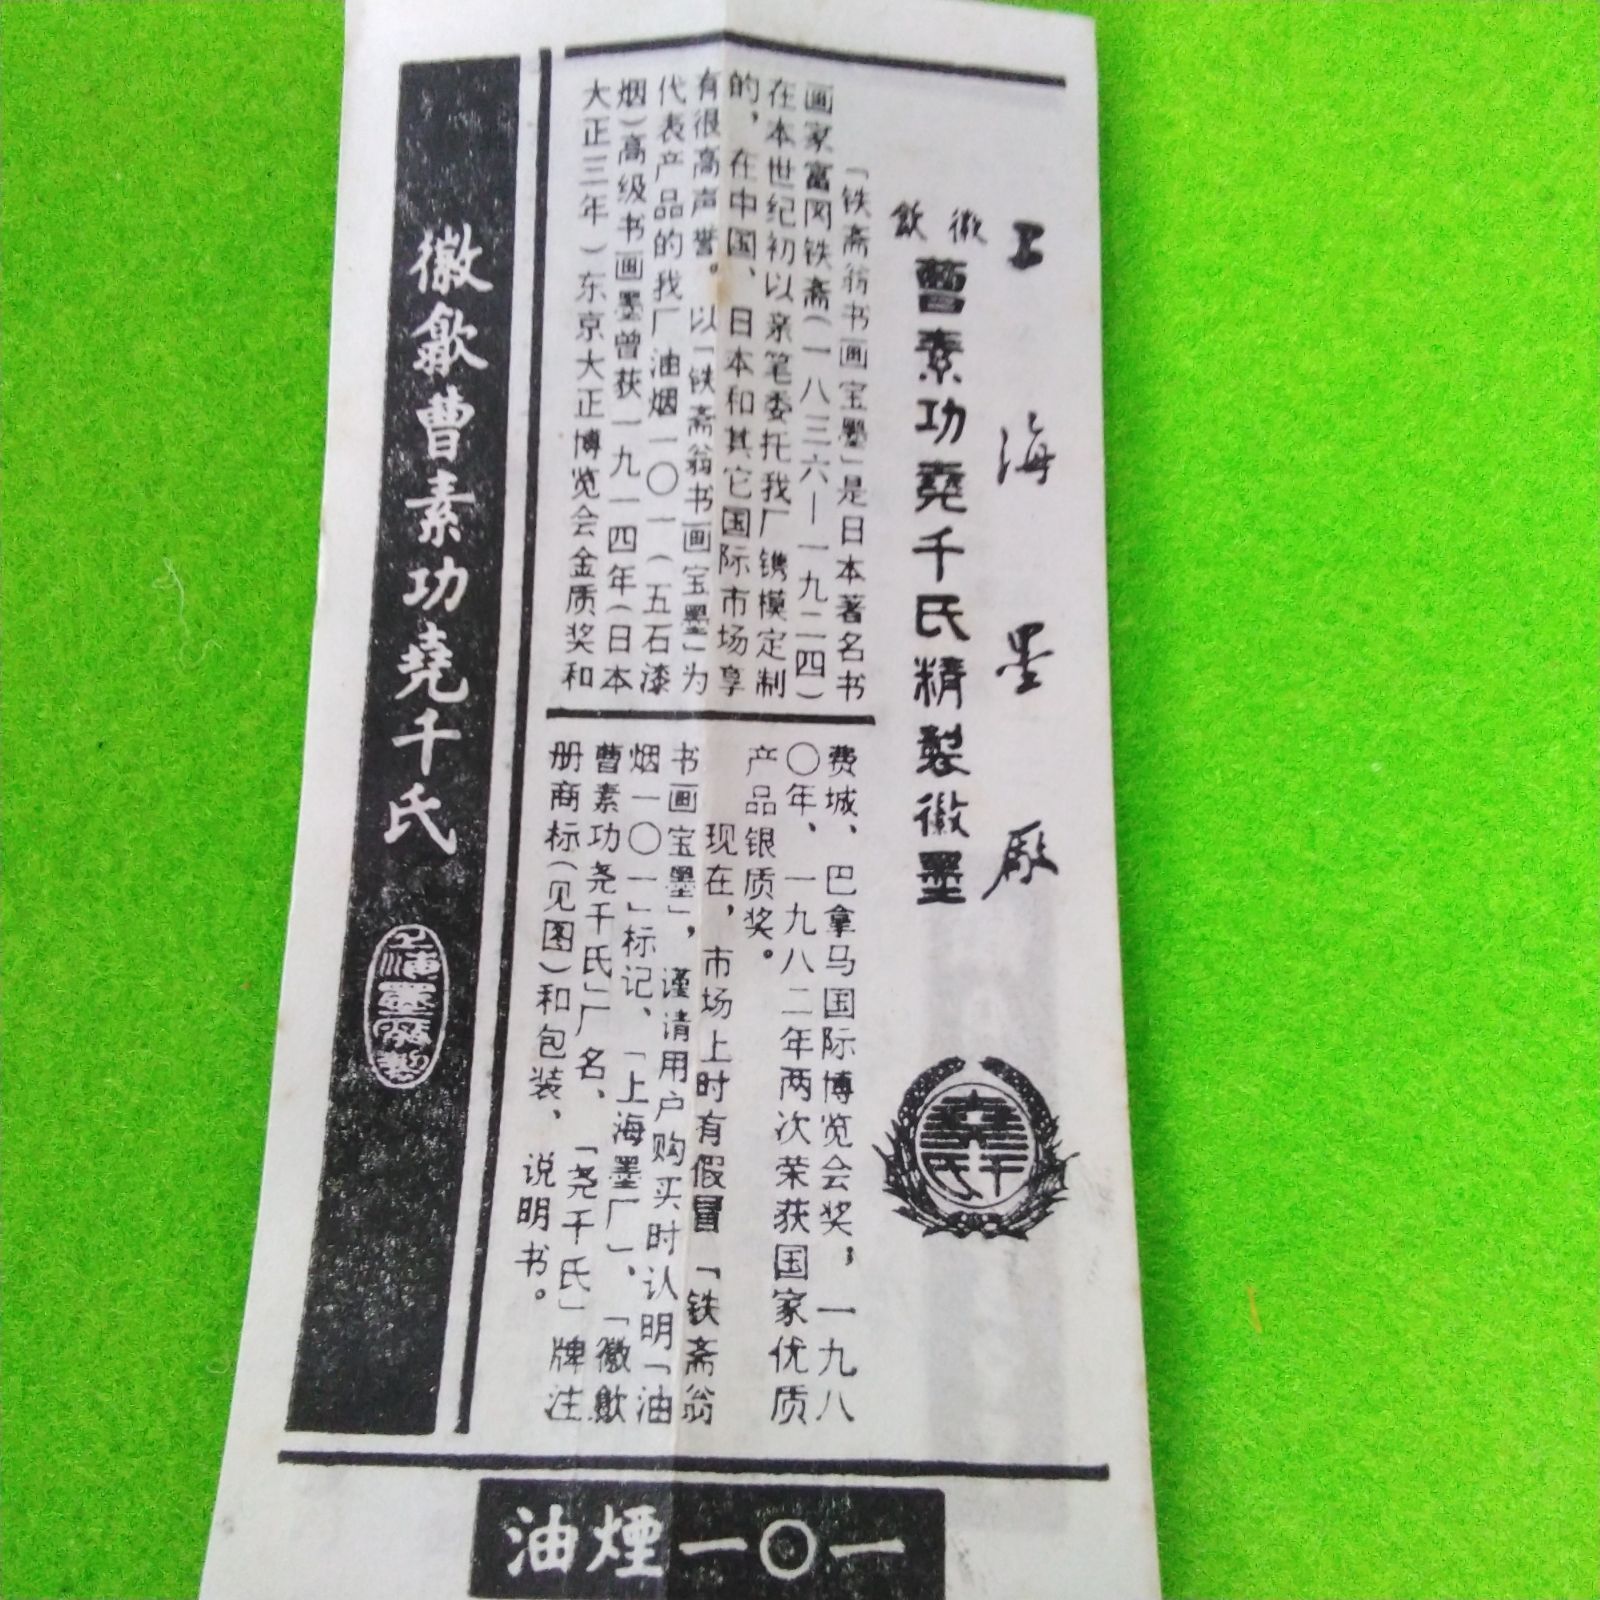 上海墨厰
徽歙
曹素功堯千氏精製徽墨
「铁斋翁书画宝墨」是日本著名书
画家富冈铁斋(一八三六—一九二四)
在本世纪初以亲笔委托我厂镌模定制
的，在中国、日本和其它国际市场享
有很高声誉。以「铁斋翁书画宝墨」为
代表产品的我厂油烟一〇一(五石漆
烟)高级书画墨曾获一九一四年(日本
大正三年)东京大正博览会金质奖和
费城、巴拿马国际博览会奖，一九八
〇年、一九八二年两次荣获国家优质
产品银质奖。
现在，市场上时有假冒「铁斋翁
书画宝墨」，谨请用户购买时认明「油
烟一〇一」标记、「上海墨厂」、「徽歙
曹素功尧千氏」厂名、「尧千氏」牌注
册商标(见图)和包装、说明书。
堯
千氏
徽歙曹素功堯千氏
上海墨厰製
油煙一〇一